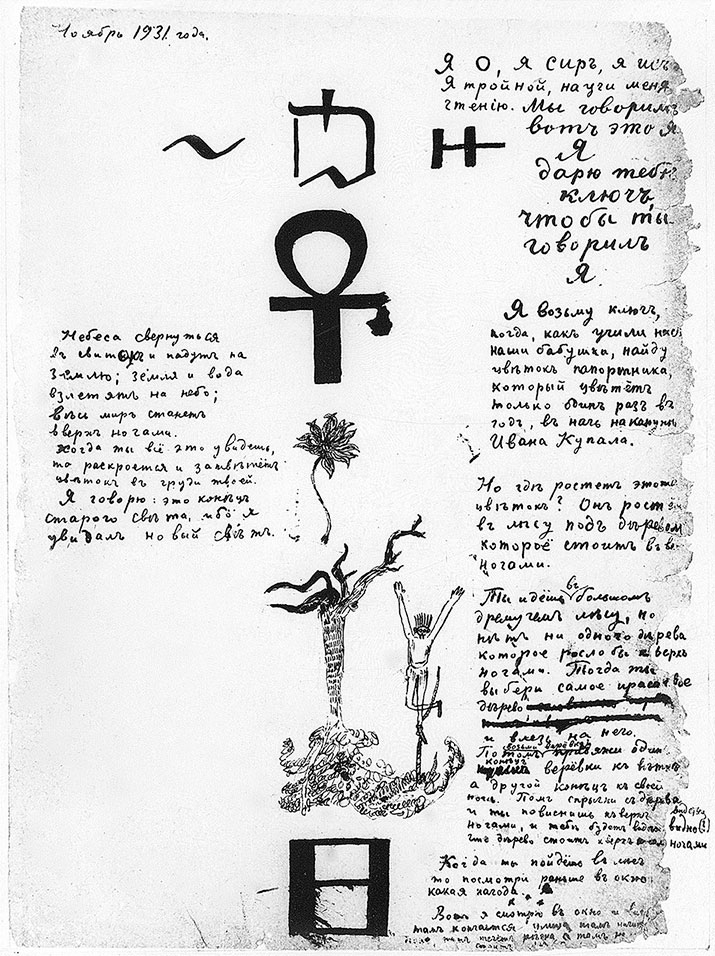 Ноябрь 1931 года.
Я О, я сиръ, я исъ
Я тройной, научи меня
чтенію. Мы говоримъ
вотъ это я
Я
дарю тебѣ
ключъ,
чтобы ты
говорилъ
Я.
Я возьму ключъ,
когда, какъ учили насъ
наши бабушка, найду
цвѣтокъ папоротника,
который цвѣтётъ
только одинъ разъ въ
годъ, въ ночь накануне
Ивана Купала.
Но гдѣ ростетъ этотъ
цвѣтокъ? Онъ ростётъ
въ лѣсу подъ дѣревом
которое стоитъ вверхъ
ногами.
Ты идёшь въ большомъ
дремучемъ лѣсу, но
нѣтъ ни одного дѣрева
которое росло бы въ верхъ
ногами. Тогда ты
выбери самое красивое
дѣрево
и влезь на него.
Потомъ возьми верёвку привяжи одинъ
конецъ верёвки къ вѣткѣ
а другой конецъ къ своей
ноге. Потомъ спрыгни съ дѣрева
и ты повиснешь къверхъ
ногами, и тебѣ будетъ видно
что дѣрево стоитъ къверхъ ногами
Когда ты пойдёшь въ лѣсъ
то посмотри раньше въ окно
какая погода.
Вотъ я смотрю въ окно и вижу
тамъ кончается улица тамъ
поле, тамъ течётъ речка а тамъ
Небеса свернуться
въ свитокъ и падутъ на
землю; земля и вода
взлетятъ на небо;
весь миръ станетъ
вверхъ ногами.
Когда ты всё это увидешь,
то раскроется и зацвѣтётъ
цвѣтокъ въ груди твоей.
Я говорю: это конѣцъ
старого свѣта, ибо я
увидалъ новый свѣтъ.